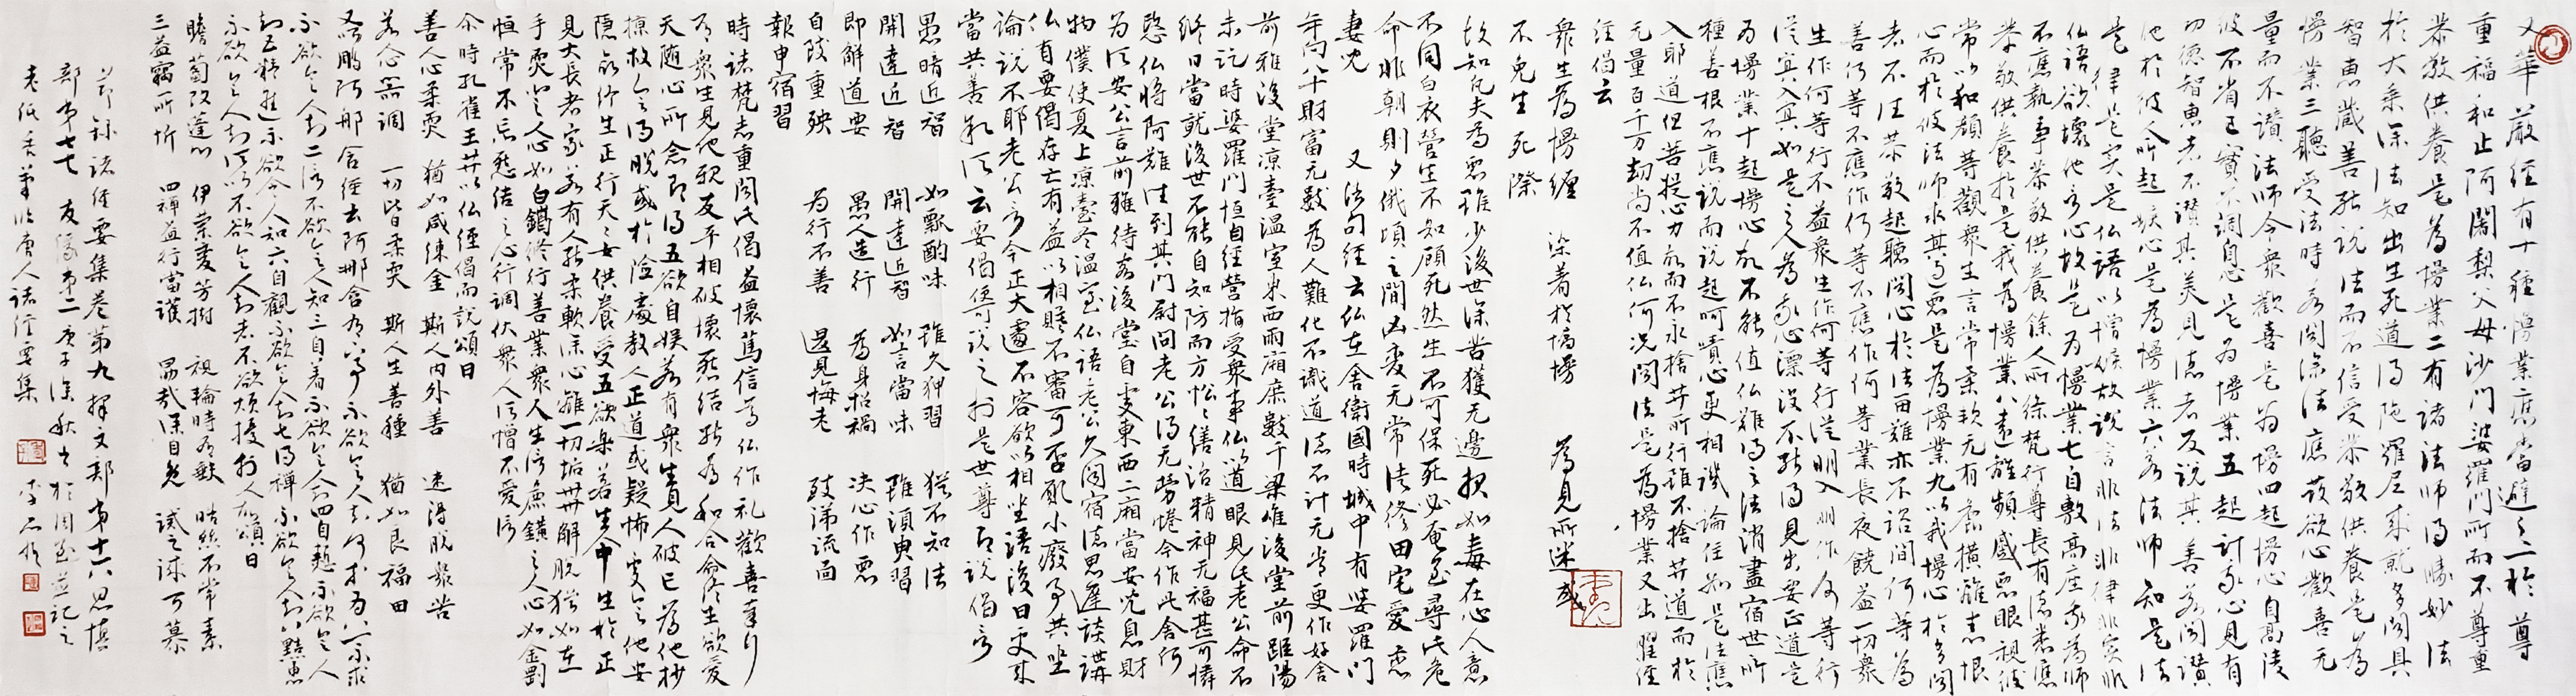 又華嚴經有十種慢業應當避之一於尊
重福和上阿闍梨父母沙門婆羅門所而不尊重
恭敬供養是為慢業二有諸法師得勝妙法
於大乘深法知出生死道得陀羅尼成就多聞具
智惠藏善能說法而不信受恭敬供養是為
慢業三聽受法時若聞深法應發欲心歡喜無
量而不讚法師令眾歡喜是為慢四起慢心自高陵
彼不省己實不調自心是為慢業五起計我心見有
功德智惠者不讚其美見德者反說其善若聞讚
他於彼人所起嫉心是為慢業六若法師知是法
是律是实是仏語以憎嫉故說言非法非律非实非
仏語欲壞他信心故是為慢業七自敷高座我為師
不應執事恭敬供養餘人所修梵行尊長有德悉應
恭敬供養於是我為慢業八遠離頻蹙惡眼視彼
常以和顏等觀眾生言常柔軟无有麁橫離恚恨
心而於彼法師求其過惡是為慢業九以我慢心於多聞
者不往恭敬起聽聞心於法留難亦不諮問何等為
善何等不應作何等不應作何等業長夜饒益一切眾
生作何等行不益眾生作何等行從明入明作何等行
從冥入冥如是之人為我心漂沒不能得見出要正道是
為慢業十起慢心故不能值仏難得之法消盡宿世所
種善根不應說而說起呵嘖心更相譏論住如是法應
入耶道但菩提心力故而不永捨菩薩所行雖不捨菩薩道而於
无量百千万劫尚不值仏何況聞法是為慢業又出曜經
經偈云
眾生為慢纏 染著於憍慢 為見所迷惑
不免生死際
故知凡夫為惡雖少後世深苦獲无邊報如毒在心人意
不同白衣營生不知顧死然生不可保死必奄至尋此危
命非朝則夕俄頃之間凶變无常徒修田宅愛戀
妻兒 又法句經云仏在舍衛國時城中有婆羅門
年向八十財富无數為人難化不識道德不計无常更作好舍
前雅後堂凉臺溫室東西兩廂庑數千梁唯後堂前距陽
未訖時婆羅門恒自經營指受眾事仏以道眼見此老公命不
終日當就後世不能自知防而方忪忪繕治精神无福甚可憐
愍仏將阿難往到其門尉問老公得无勞惓今作此舍何
為所安公言前雅待客後堂自處東西二廂當安兒息財
物僕使夏上凉臺冬溫室仏語老公久聞宿德思遲談講
仏有要偈存亡有益以相賸不審可否願小廢事共坐
論說不耶老公言今正大遽不容欲以相坐語後日更来
當共善叙所云要偈便可說之於是世尊即說偈言
愚暗近智 如瓢酌味 雖久狎習 猶不知法
開達近智 開達近智 如言當味 雖須臾習
即解道要 愚人造行 為身招禍 快心作惡
自致重殃 為行不善 退見悔吝 致涕流面
報申宿習
時諸梵志重聞此偈益壞篤信為仏作礼歡喜奉行
若眾生見他親友平相破壞惡结能為和合命終生欲愛
天随心所念即得五欲自娛若有眾生見人破亡為他抄
掠救令得脫或於险處教人正道或疑怖處令他安
隐命終生正行天天女供養受五欲樂若生命中生於正
見大長者家若有人能柔軟深心離一切垢無解脫猶如在
手耎心之人心如白鑞终行善業眾人生信麁鑛之人心如金剛
恒常不忘惡结之心行調伏眾人所憎不愛信
余時孔雀王菩薩以仏經偈而說頌曰
善人心柔耎 猶如成練金 斯人内外善 速得脫眾苦
若人心器調 一切皆柔耎 斯人生善種 猶如良福田
又駱鵬阿那含經云阿那含有八事不欲令人知何求為八一不求
不欲令人知二信不欲令人知三自羞不欲令人知四自慙不欲令人
知五精進不欲令人知六自觀不欲令人知七得禪不欲令人知八黠惠
不欲令人知所以不欲令人知者不欲煩擾於人故頌曰
瞻蔔改蓬心 伊蘭变芳樹 祖輪時為斂 咶絲不常素
三益竊所忻 四禪益行當護 勗哉深自勉 誠之詠可慕
節錄諸經要集卷第九擇交部第十八思慎
部第十七 友緣第二 庚子深秋書於同島並記之
老紙禿筆臨唐人諸經要集